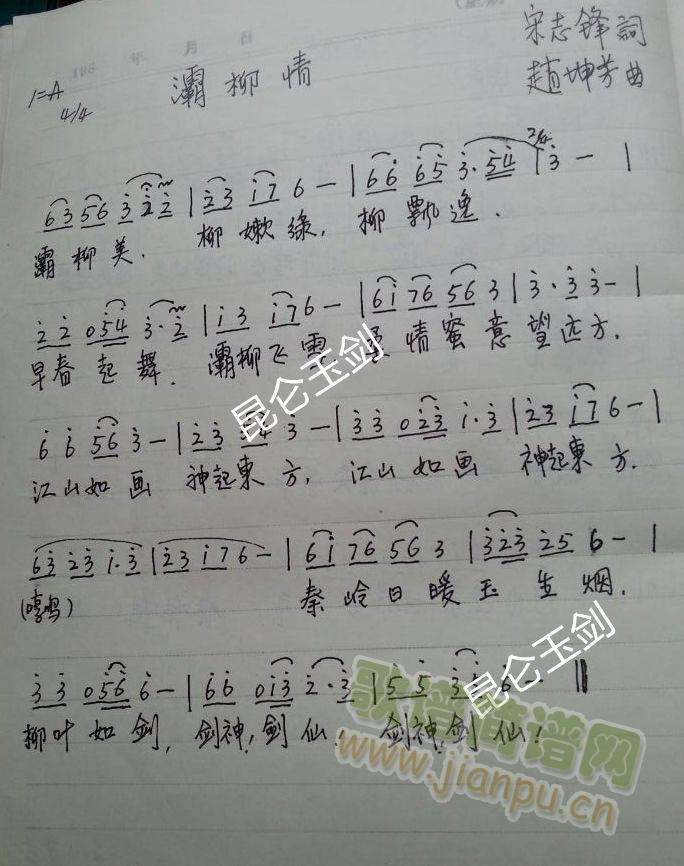 灞柳情
宋志锋詞
1=A
4/4
趙坤芳曲
年 月 日
2/4
6 3 5 6 3 2 2 | 2 3 1 7 6 - | 6 6 6 5 3 · 5 4 | 3 - |
灞柳美. 柳嫩綠, 柳飘逸.
2 2 0 5 4 3 · 2 | 1 3 1 7 6 - | 6 1 7 6 5 6 3 | 3 · 3 3 - |
早春起舞. 灞柳飞雪 情蜜意望远方.
6 6 5 6 3 - | 2 3 5 4 3 - | 3 3 0 2 3 1 · 3 | 2 3 1 7 6 - |
江山如画 神起東方, 江山如画 神起東方.
6 3 2 3 1 · 3 | 2 3 1 7 6 - | 6 1 7 6 5 6 3 | 3 2 3 2 5 6 - |
秦岭日暖玉生烟.
3 3 0 5 6 6 - | 6 6 0 1 3 2 · 3 | 5 5 3 6 - ||
柳叶如剑, 剑神, 剑仙! 剑神,剑仙!
昆仑玉剑
昆仑玉剑
歌谱简谱网
www.jianpu.cn